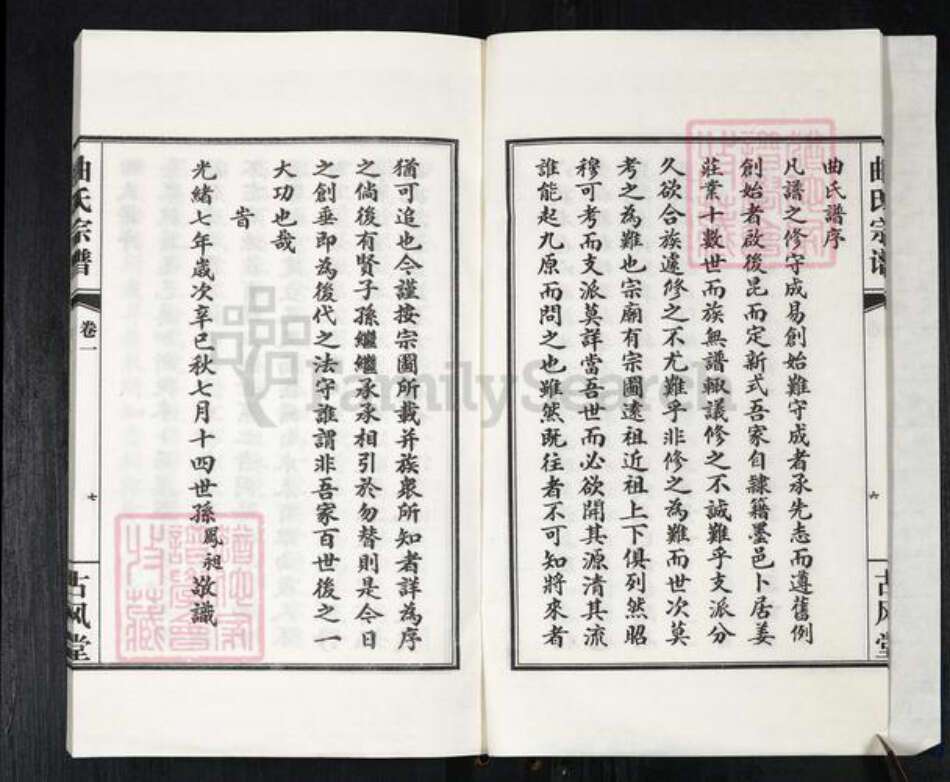 曲氏宗谱
六
古风堂
曲氏譜序
凡譜之修守成易創始難守成者承先志而遵舊例
創始者啟後昆而定新式吾家自隸籍墨邑卜居姜
莊業十數世而族無譜輙議修之不誠難乎支派分
久欲合族遽修之不尤難乎非修之為難而世次莫
考之為難也宗廟有宗圖遠祖近祖上下俱列然昭
穆可考而支派莫詳當吾世而必欲開其源清其流
誰能起九原而問之也雖然既往者不可知將來者
猶可追也今謹按宗圖所載并族衆所知者詳為序
之倘後有賢子孫繼繼承承相引於勿替則是今日
之創垂即為後代之法守誰謂非吾家百世後之一
大功也哉
旹
光緒七年歲次辛巳秋七月十四世孫鳳昶敬識
曲氏宗譜
卷一
七
古风堂
FamilySearch